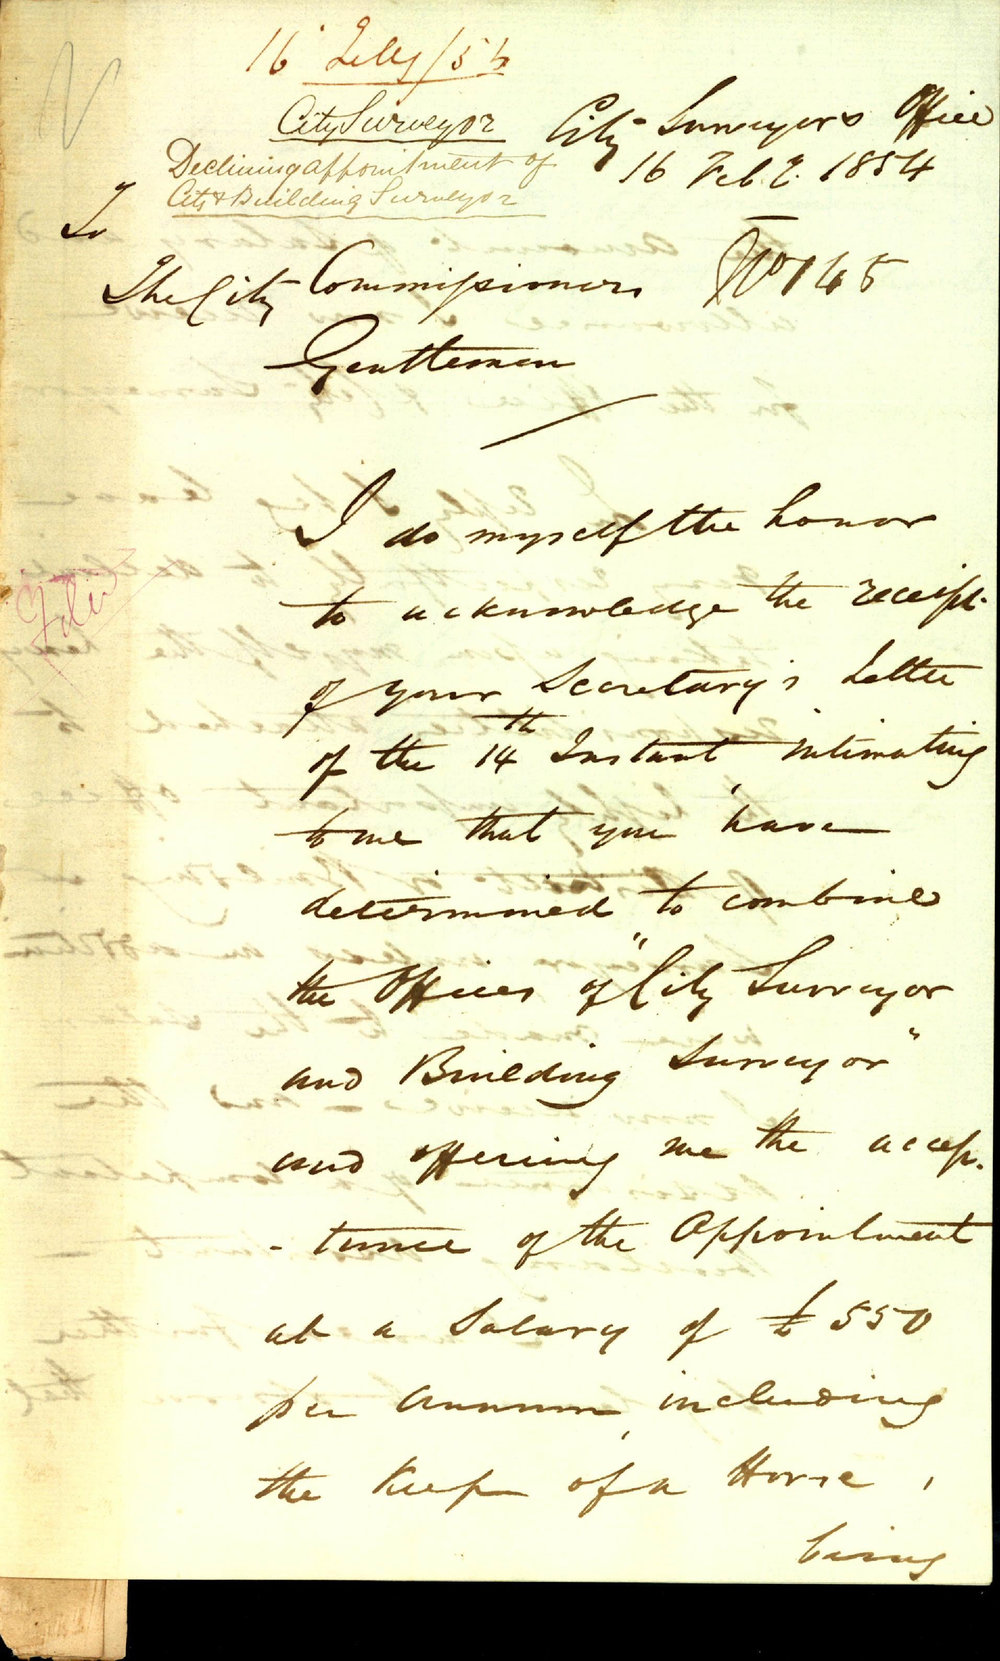 16 Feby/54
City Surveyor
Declining appointment of
City & Building Surveyor
City Surveyors Office
16 Feb.y. 1854
To
The City Commissioners
No 145
Gentlemen
I do myself the honor
to acknowledge the receipt
of your Secretary's Letter
of the 14th Instant intimating
to me that you have
determined to combine
the Offices of "City Surveyor
and Building Surveyor"
and offering me the accep-
-tance of the Appointment
at a Salary of £550
per Annum, including
the Keep of a Horse,
being